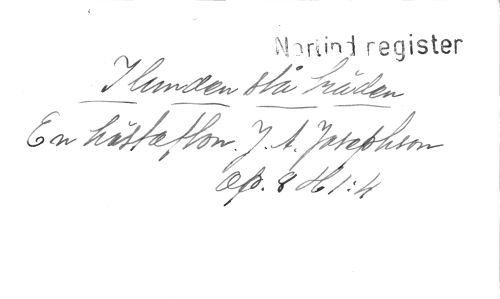 Norlind register
I lunden stå träden
En höstafton. J. A. Josephson
Op. 8 H 1:4